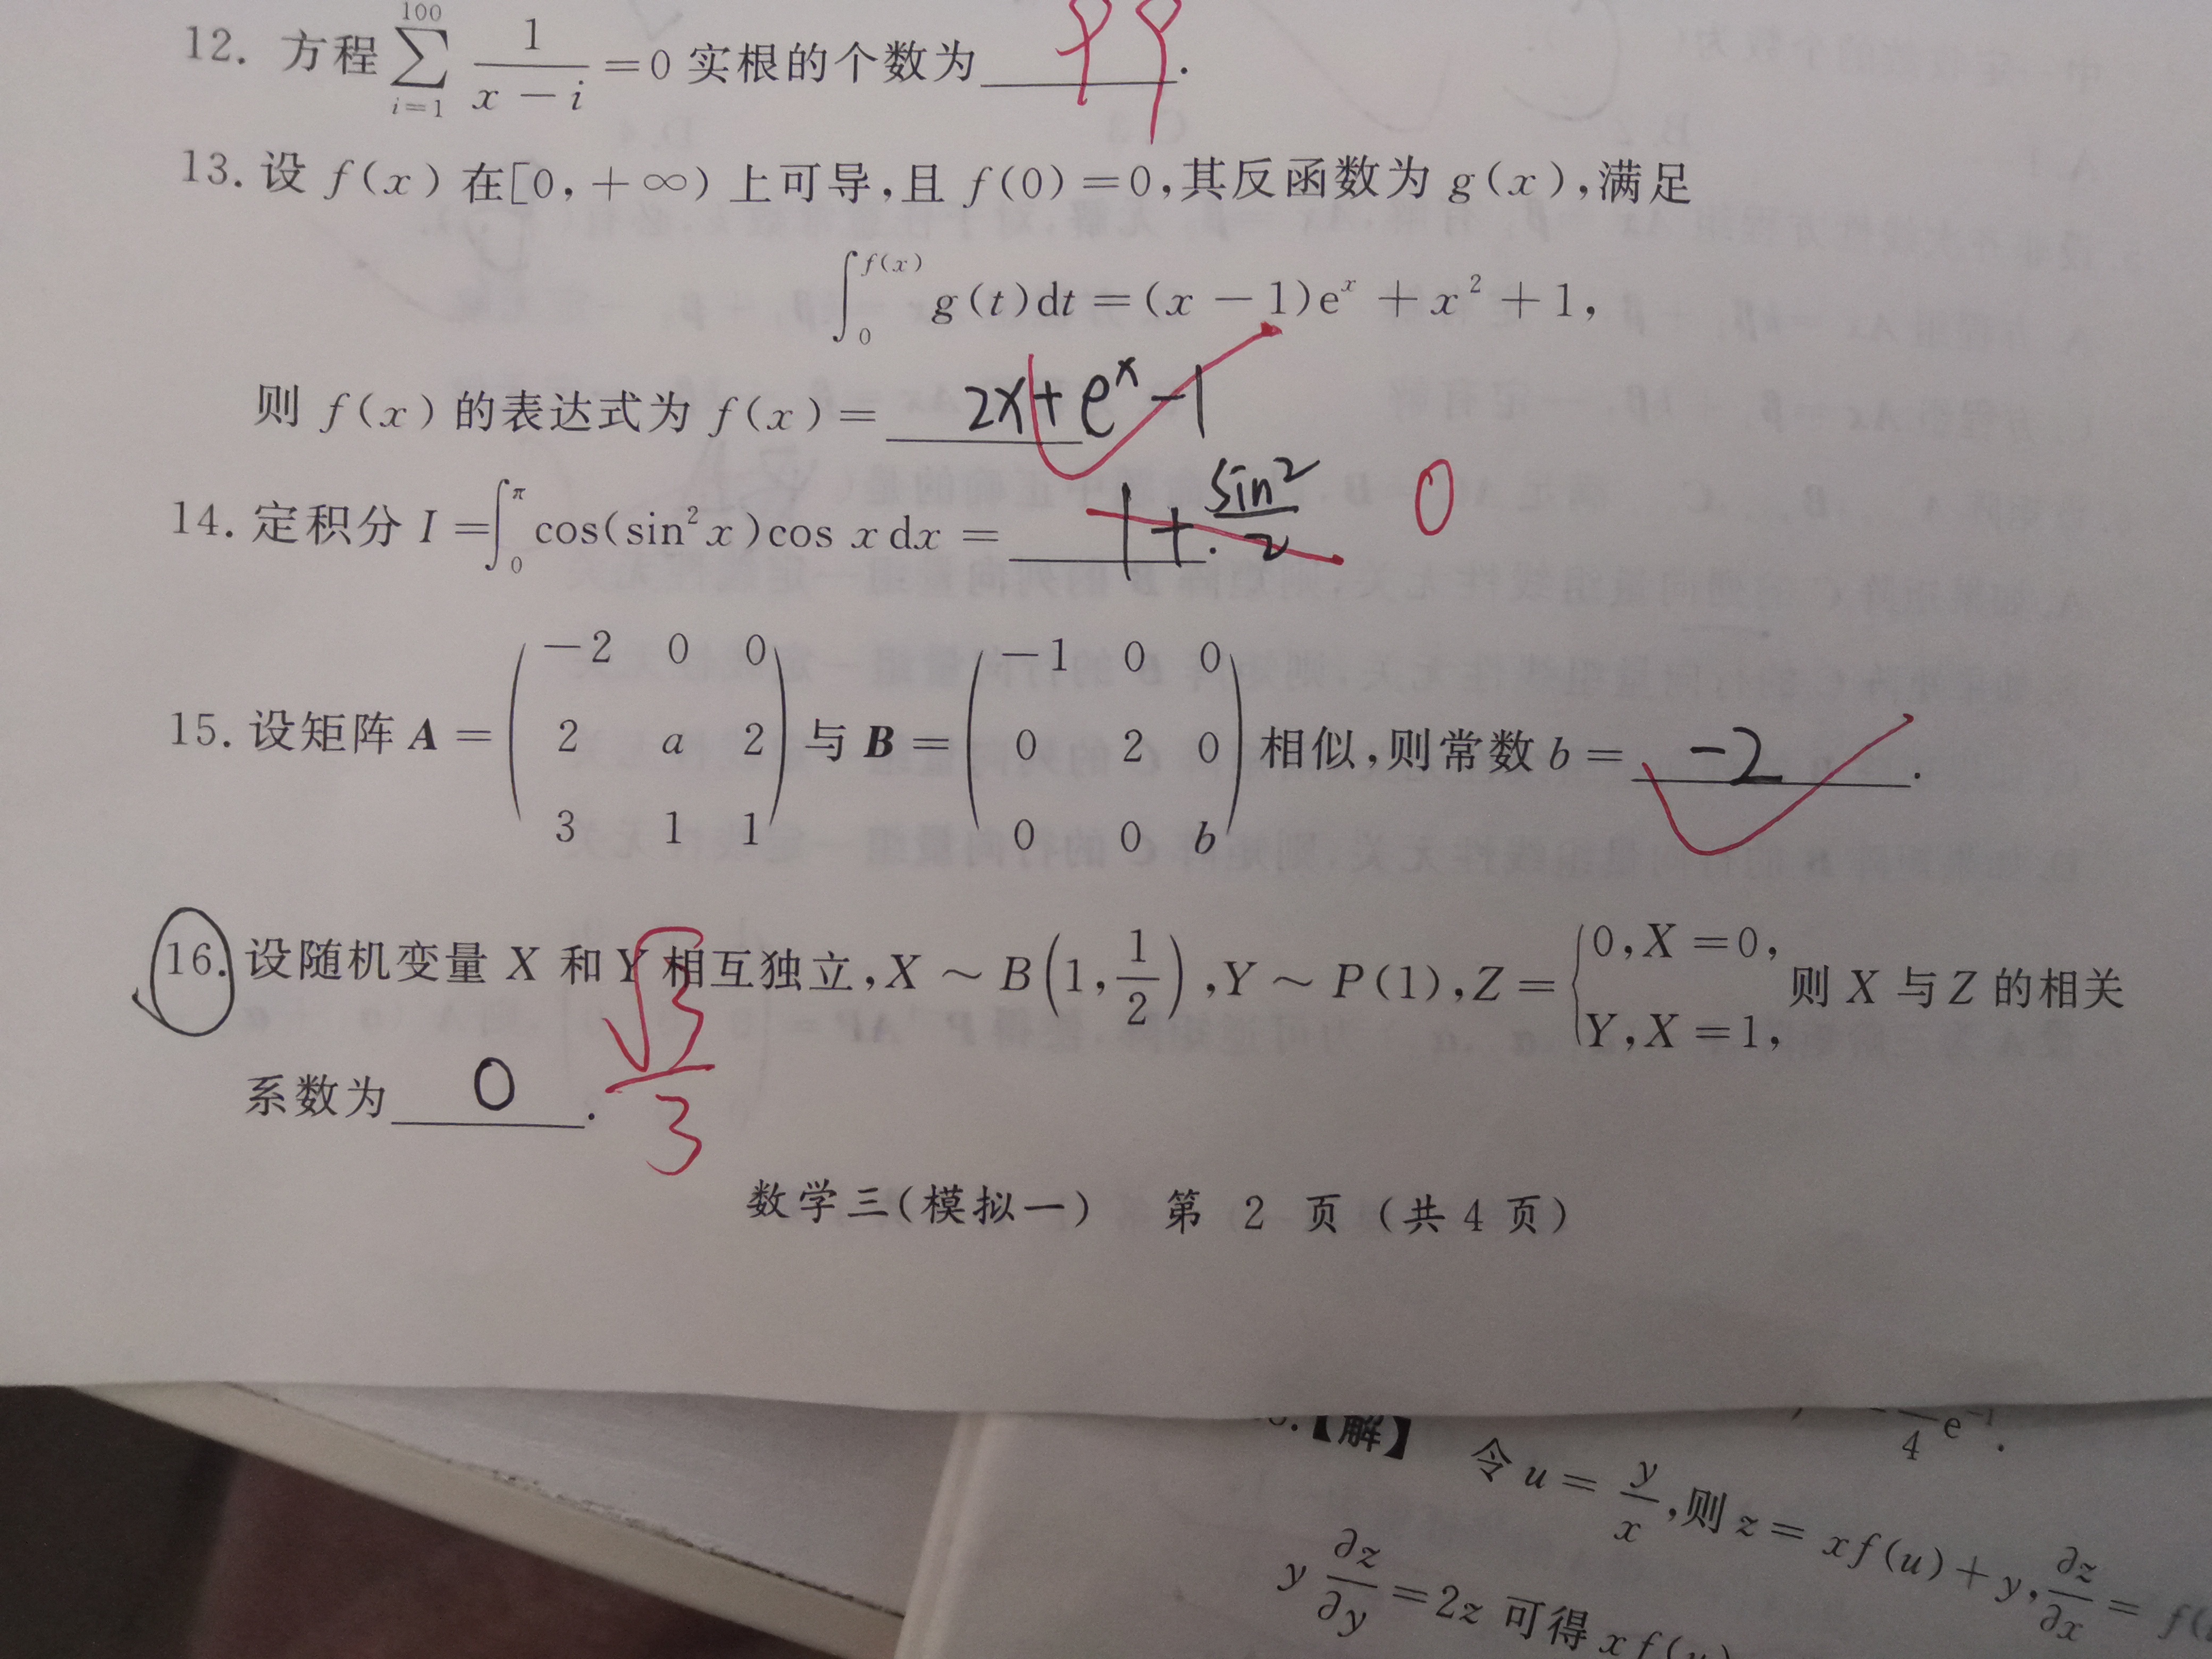 12. 方程 \sum_{i=1}^{100} \frac{1}{x-i} = 0 实根的个数为 99 .
13. 设 f(x) 在[0, +∞) 上可导,且 f(0) = 0,其反函数为 g(x),满足
\int_0^{f(x)} g(t)dt = (x-1)e^x + x^2 + 1,
则 f(x) 的表达式为 f(x) = 2x+e^x-1
14. 定积分 I = \int_0^π cos(sin^2 x)cos x dx = 1+\frac{sin^2}{2} . 0
15. 设矩阵 A = \begin{pmatrix} -2 & 0 & 0 \\ 2 & a & 2 \\ 3 & 1 & 1 \end{pmatrix} 与 B = \begin{pmatrix} -1 & 0 & 0 \\ 0 & 2 & 0 \\ 0 & 0 & b \end{pmatrix} 相似,则常数 b = -2 .
16. 设随机变量 X 和 Y 相互独立, X ~ B(1, \frac{1}{2}), Y ~ P(1), Z = \begin{cases} 0, X=0, \\ Y, X=1, \end{cases} 则 X 与 Z 的相关
系数为 0 . \frac{\sqrt{3}}{3}
数学三(模拟一) 第 2 页 (共 4 页)
4 e^{-1}.
.【解】 令 u = \frac{y}{x},则 z = xf(u) + y, \frac{∂z}{∂x} = f(
y \frac{∂z}{∂y} = 2z 可得 xf(u)